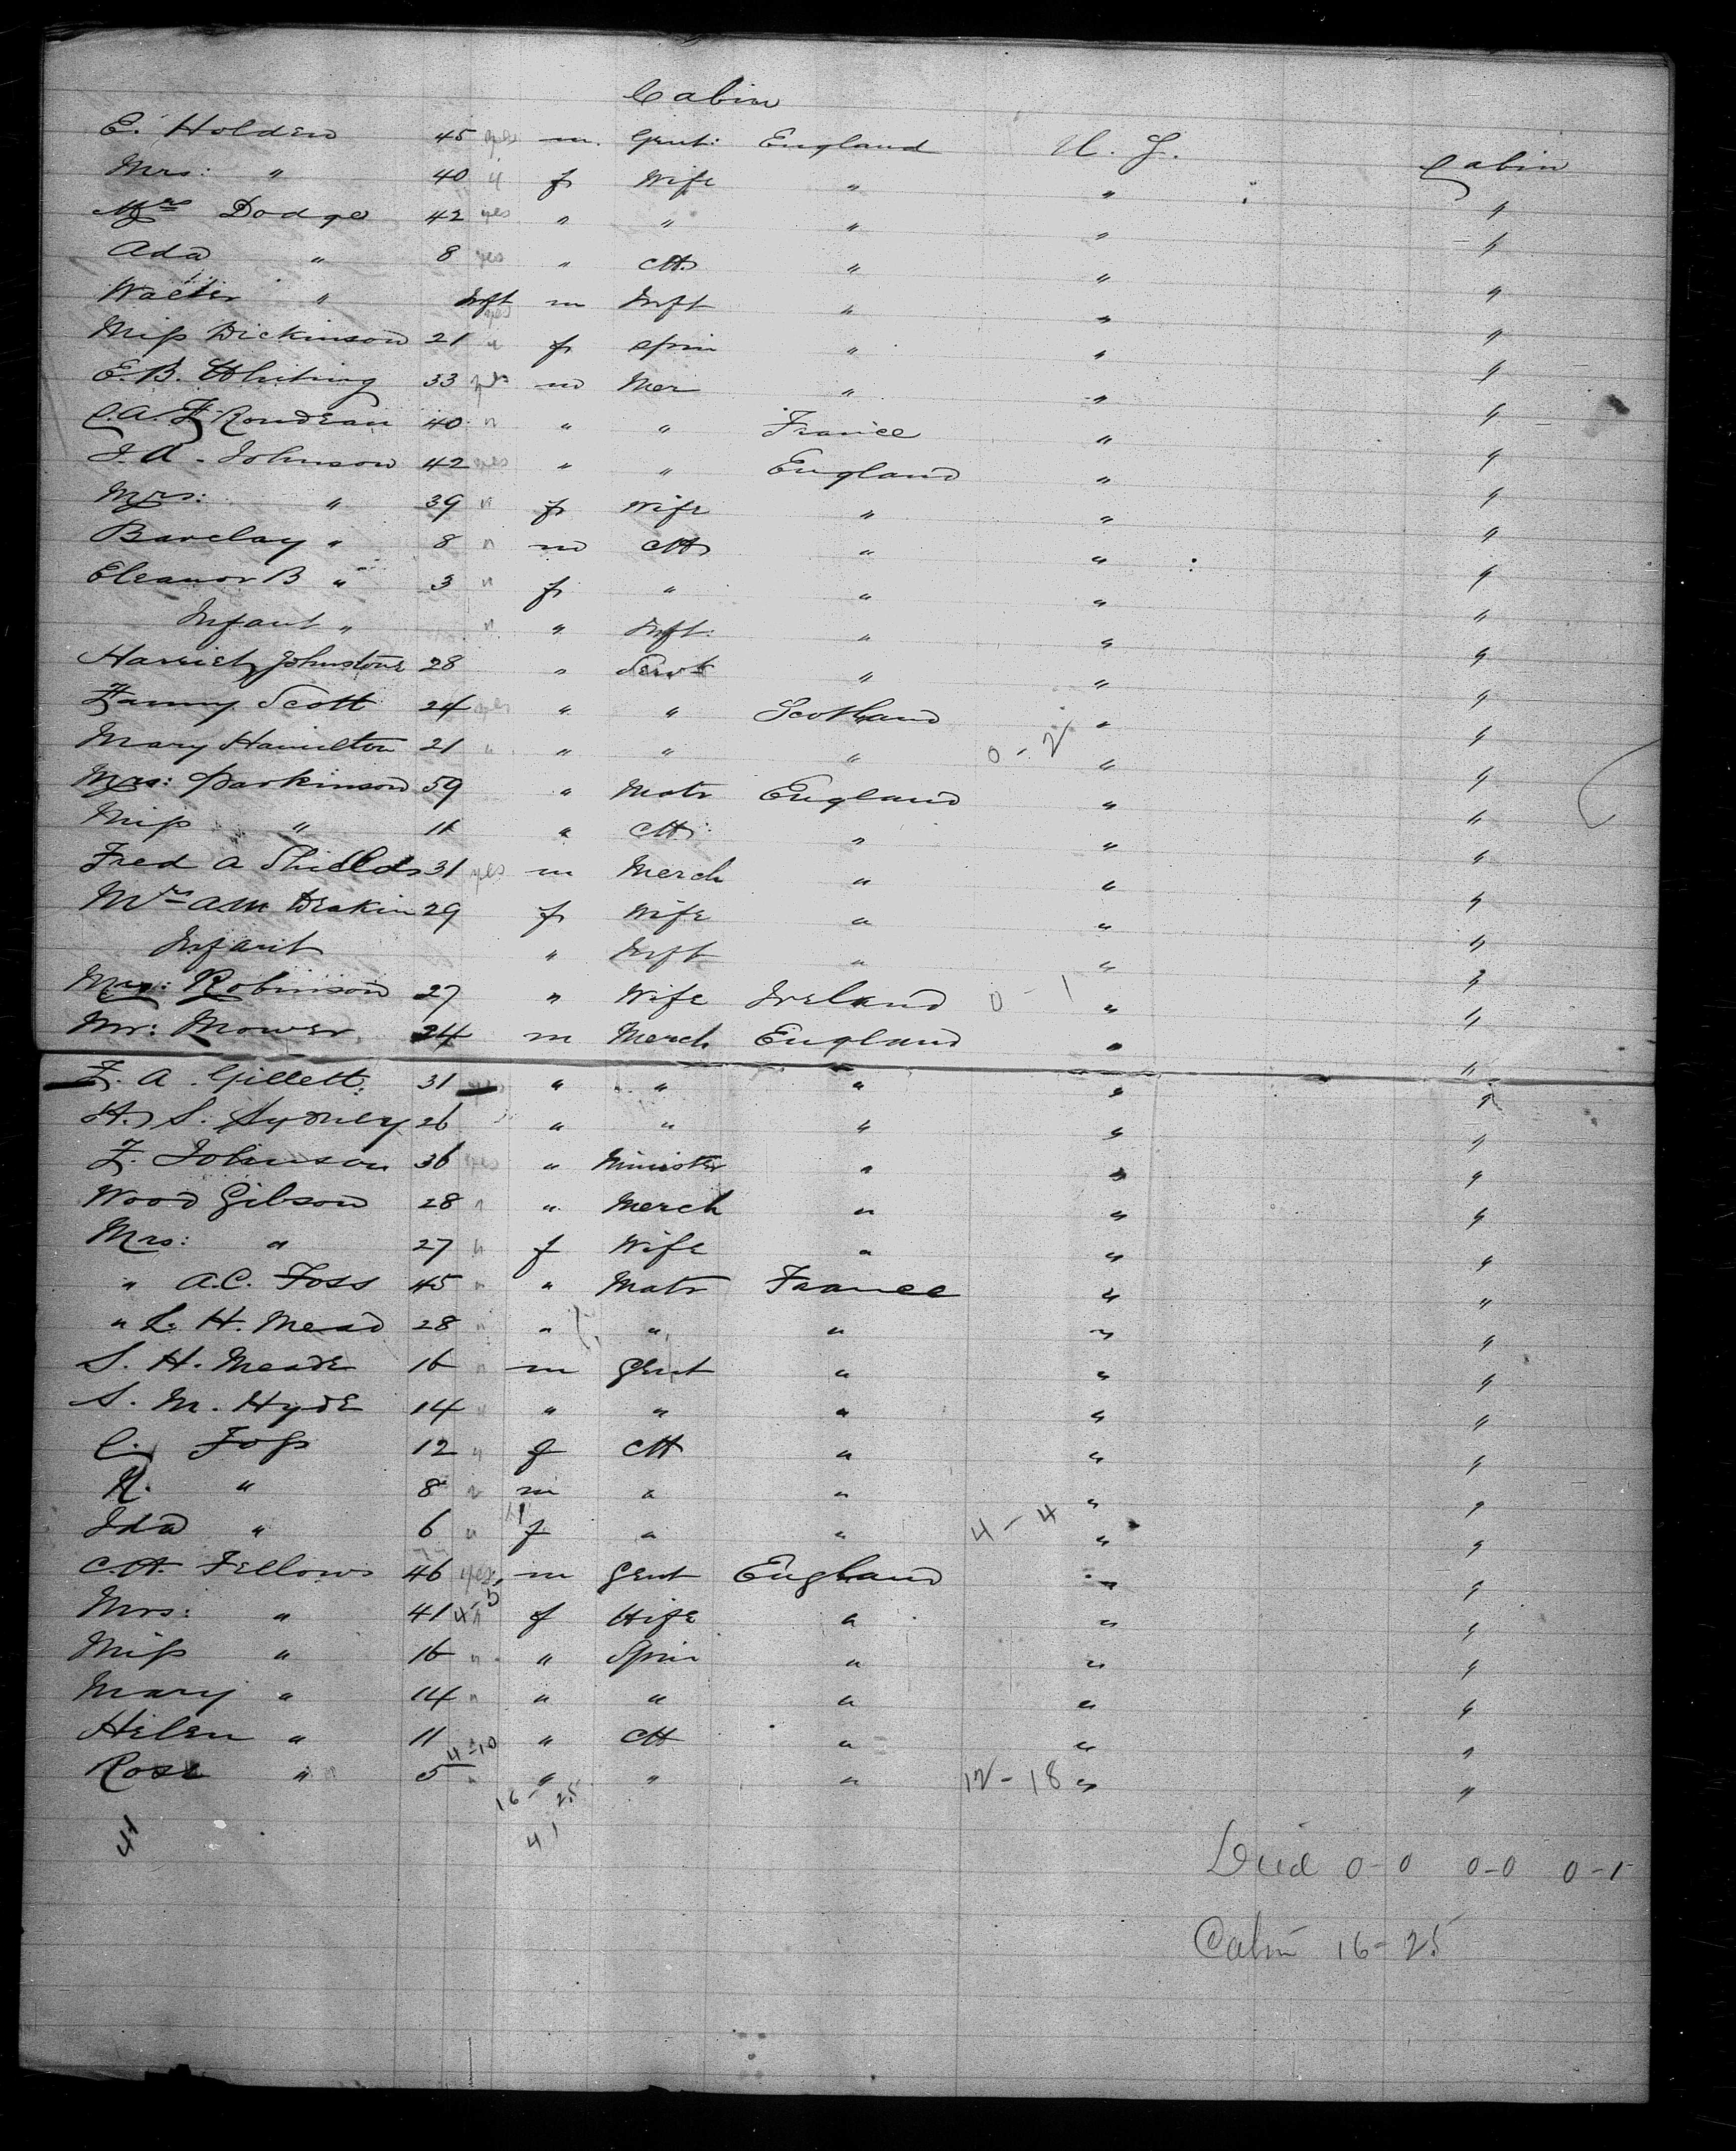 Cabin
E. Holden 45 yes m. Gent: England U. S. Cabin
Mrs: " 40 " f Wife " " "
Mrs Dodge 42 yes " " " " "
Ada " 8 yes " Ch " " "
Walter " Inft yes m Inft " " "
Miss Dickinson 21 " f Spin " " "
E. B. Whiting 33 yes m Mer " " "
C. A. F. Rondeau 40 " " " France " "
J. A. Johnson 42 yes " " England " "
Mrs: " 39 " f Wife " " "
Barclay " 8 " m Ch " " "
Eleanor B " 3 " f " " " "
Infant " " " Inft. " " "
Harriet Johnstone 28 " Servt " " "
Fanny Scott 24 yes " " Scotland " "
Mary Hamilton 21 " " " " 0-2 " "
Mrs: Parkinson 59 " Matr England " "
Miss " 11 " Ch: " " "
Fred A Shields 31 yes m Merch " " "
Mrs A M Deakin 29 f Wife " " "
Infant " Inft " " "
Mrs: Robinson 27 " Wife Ireland 0-1 " "
Mr: Mower 24 m Merch England " "
F. A. Gillett 31 " " " " "
H. S. Sydney 26 " " " " "
F. Johnson 36 yes " Minister " " "
Wood Gibson 28 " " Merch " " "
Mrs: " 27 " f Wife " " "
" A.C. Foss 45 " " Matr France " "
" L. H. Mead 28 " " " " " "
S. H. Meade 16 " m Gent " " "
S. M. Hyde 14 " " " " " "
C. Foss 12 " f Ch " " "
N. " 8 " m " " " "
Ida " 6 " f " " 4-4 " "
C.H. Fellows 46 yes m Gent England " "
Mrs: " 41 4-5 " f Wife " " "
Miss " 16 " " Spin " " "
Mary " 14 " " " " " "
Helen " 11 " Ch " " "
Rose " 5 4-10 " " " " 12-18 " "
16-25
41 41
Died 0-0 0-0 0-1
Cabin 16-25